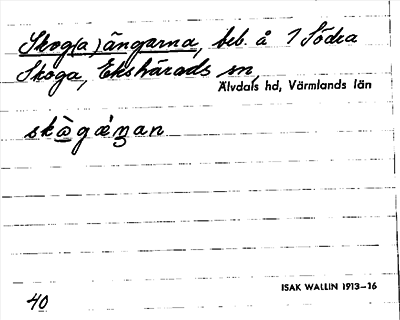 Skog(a)ängarna, beb. å 1 Södra
Skoga, Ekshärads sn,
Älvdals hd, Värmlands län
ISAK WALLIN 1913–16
40